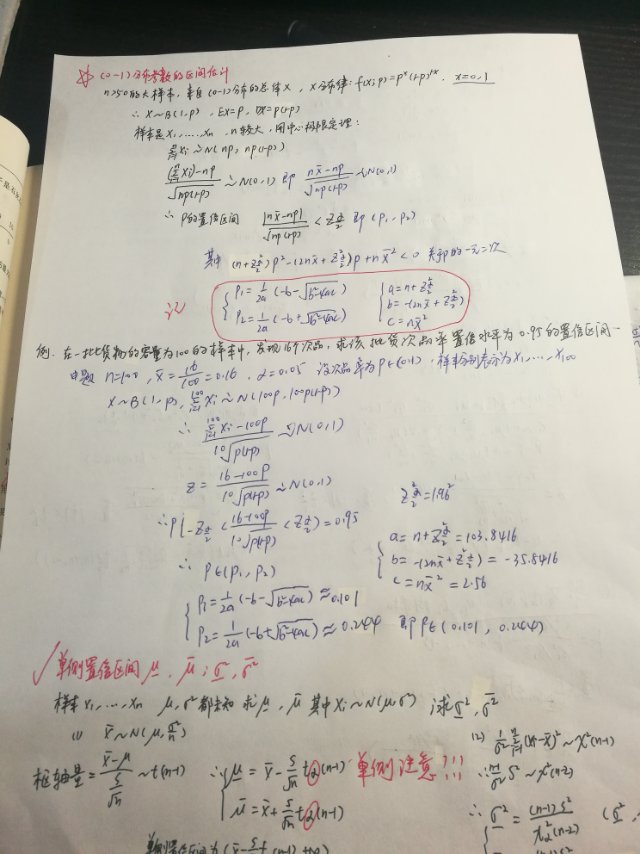 ☆ (0-1)分布参数的区间估计
n>50的大样本,来自(0-1)分布的总体X,X分布律:f(x;p)=p^x(1-p)^{1-x},x=0,1
∴ X~B(1,p),EX=p,DX=p(1-p)
样本是X₁,……,Xₙ,n较大,用中心极限定理:
Σ_{i=1}^n Xᵢ ~ N(np, np(1-p))
(Σ_{i=1}^n Xᵢ)-np / √np(1-p) ~ N(0,1) 即 nX̄-np / √np(1-p) ~ N(0,1)
∴ P的置信区间 |nX̄-np| / √np(1-p) < Z_{α/2} 即(p₁,p₂)
其中 (n+Z²_{α/2})p²-(2nX̄+Z²_{α/2})p+nX̄²<0 关于p的一元二次
记 { p₁=1/2a(-b-√b²-4ac) { a=n+Z²_{α/2}
p₂=1/2a(-b+√b²-4ac) b=-(2nX̄+Z²_{α/2})
c=nX̄²
例.在一批货物的容量为100的样本中,发现16个次品,求该批货次品率置信水平为0.95的置信区间
由题 n=100,X̄=16/100=0.16,α=0.05 设次品率为p∈(0,1),样本分别表示为X₁,…,X₁₀₀
X~B(1,p),Σ_{i=1}^{100} Xᵢ ~ N(100p,100p(1-p))
∴ Σ_{i=1}^{100} Xᵢ-100p / 10√p(1-p) ~ N(0,1)
Z=16-100p / 10√p(1-p) ~ N(0,1)
Z²_{α/2}=1.96²
∴P{-Z_{α/2}<16-100p / 10√p(1-p)<Z_{α/2}}=0.95
{ a=n+Z²_{α/2}=103.8416
b=-(2nX̄+Z²_{α/2})=-35.8416
c=nX̄²=2.56
∴ p∈(p₁,p₂)
{ p₁=1/2a(-b-√b²-4ac)≈0.101
p₂=1/2a(-b+√b²-4ac)≈0.244 即p∈(0.101,0.244)
√单侧置信区间 μ̲,μ̄;σ̲²,σ̄²
样本X₁,…,Xₙ μ,σ²都未知 求μ̲,μ̄ 其中Xᵢ~N(μ,σ²) 求σ̲²,σ̄²
(1) X̄~N(μ,σ²/n)
(2) 1/σ² Σ_{i=1}^n(Xᵢ-X̄)²~χ²(n-1)
枢轴量=X̄-μ / S/√n ~t(n-1) ∴{ μ̲=X̄-S/√n t_α(n-1) 单侧注意!!!
μ̄=X̄+S/√n t_α(n-1)